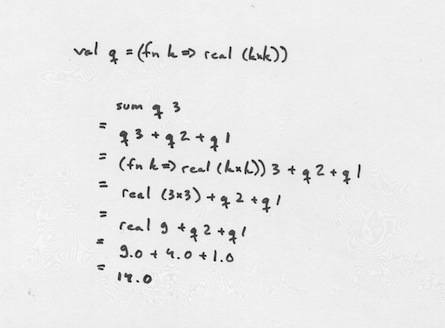 val q = (fn k => real (k*k))
sum q 3
=
q 3 + q 2 + q 1
=
(fn k => real (k*k)) 3 + q 2 + q 1
=
real (3*3) + q 2 + q 1
=
real 9 + q 2 + q 1
=
9.0 + 4.0 + 1.0
=
14.0